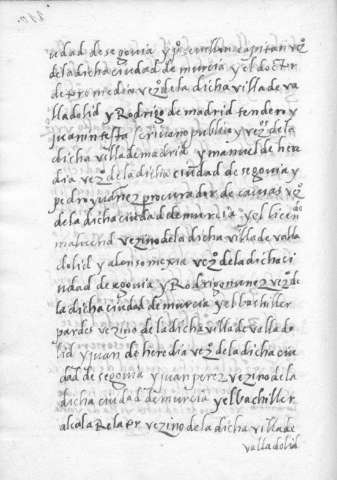 udad de segouia y
de la dicha ciudad de murcia y el doctor
de promedia vezº de la dicha villa de va
lladolid y Rodrigo de madrid tendero y
juan scriuano publico y vezº de la
dicha villa de madrid y manuel de here
dia vezº de la dicha ciudad de segouia y
pedro yuañez procurador de causas vezº
de la dicha ciudad de murcia y el licendº
vezino de la dicha villa de valla
dolid y alonso mexia vezº de la dicha ci
udad de segouia y Rodrigo nunez vezº de
la dicha ciudad de murcia y el bachiller
pardes vezino de la dicha villa de vallado
lid y juan de heredia vezº de la dicha ciu
dad de segouia y juan perez vezino de la
dicha ciudad de murcia y el bachiller
alcala Relapr vezino de la dicha villa de
valladolid